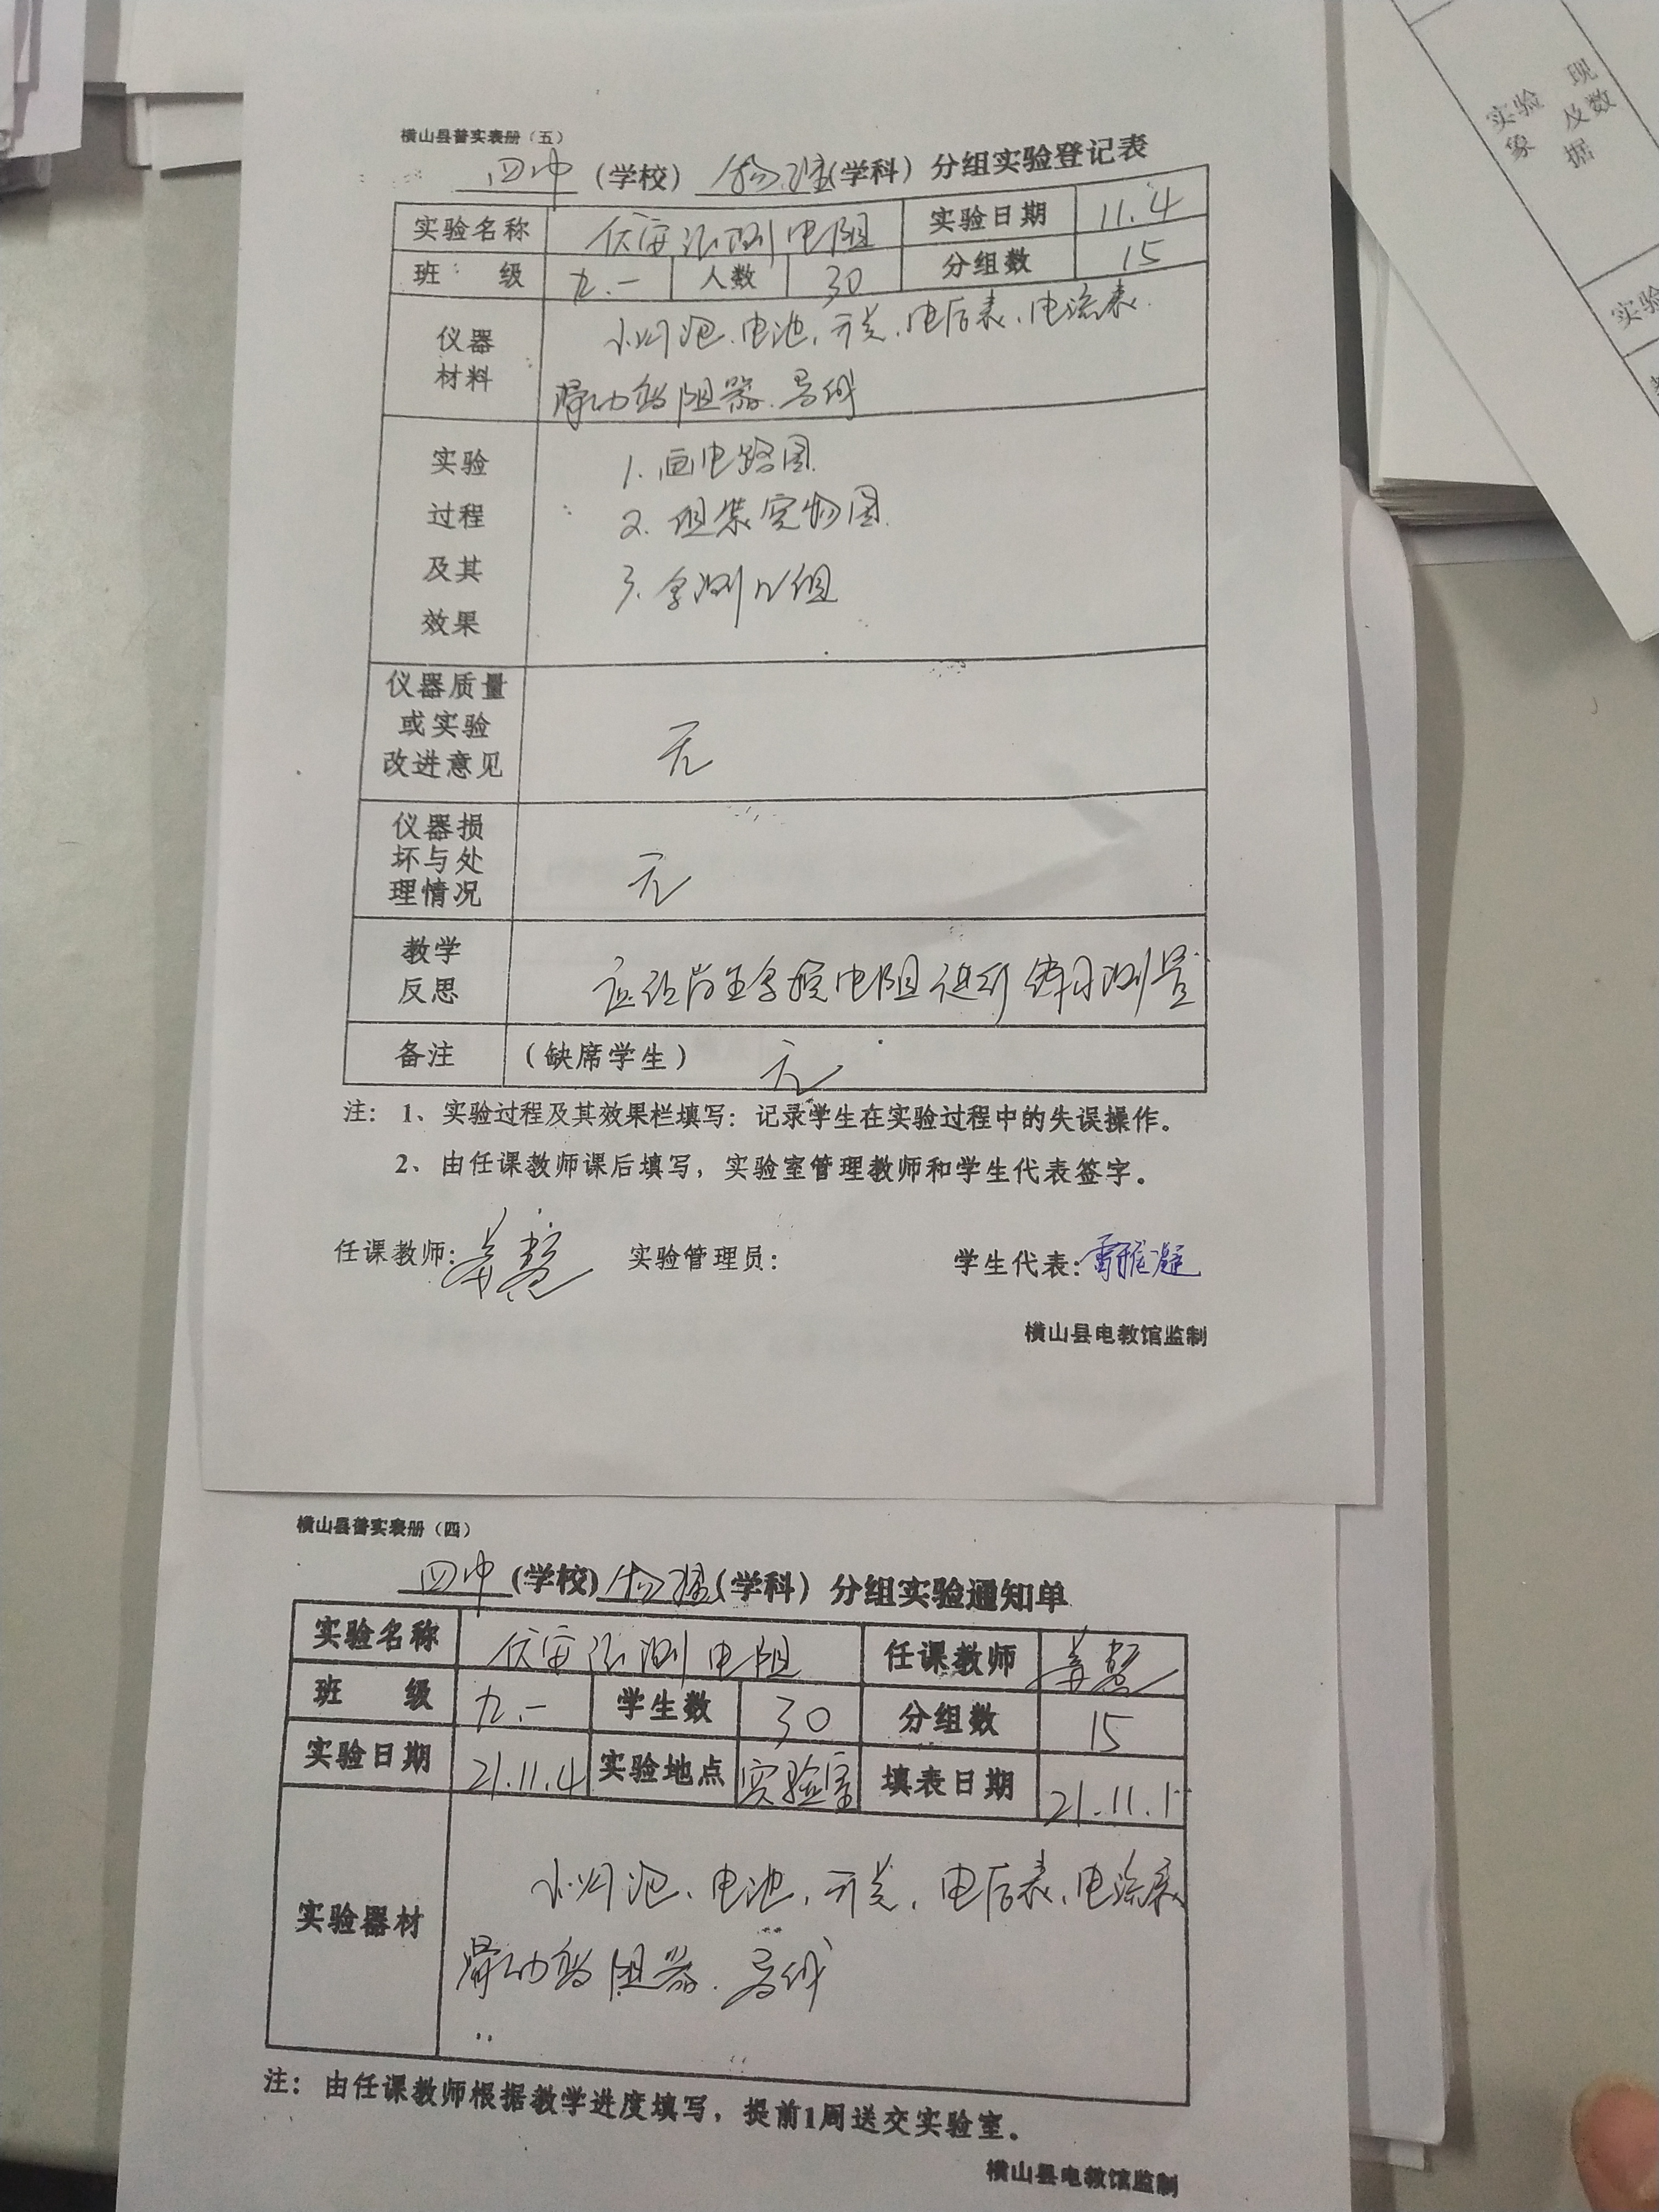 横山县普实表册（五）
四中（学校）物理（学科）分组实验登记表
实验名称 伏安法测电阻 实验日期 11.4
班 级 九.一 人数 30 分组数 15
仪器材料 小灯泡、电池、开关、电压表、电流表、
滑动变阻器、导线
实验过程及其效果 1. 画电路图
2. 组装实物图
3. 多测几组
仪器质量或实验改进意见 无
仪器损坏与处理情况 无
教学反思 应给学生多换电阻进行练习测量
备注 （缺席学生） 无
注： 1、实验过程及其效果栏填写：记录学生在实验过程中的失误操作。
2、由任课教师课后填写，实验室管理教师和学生代表签字。
任课教师： 实验管理员： 学生代表：
横山县电教馆监制
横山县普实表册（四）
四中（学校）物理（学科）分组实验通知单
实验名称 伏安法测电阻 任课教师
班 级 九.一 学生数 30 分组数 15
实验日期 21.11.4 实验地点 实验室 填表日期 21.11.1
实验器材 小灯泡、电池、开关、电压表、电流表
滑动变阻器、导线
注：由任课教师根据教学进度填写，提前1周送交实验室。
横山县电教馆监制
实验现象及数据
实验